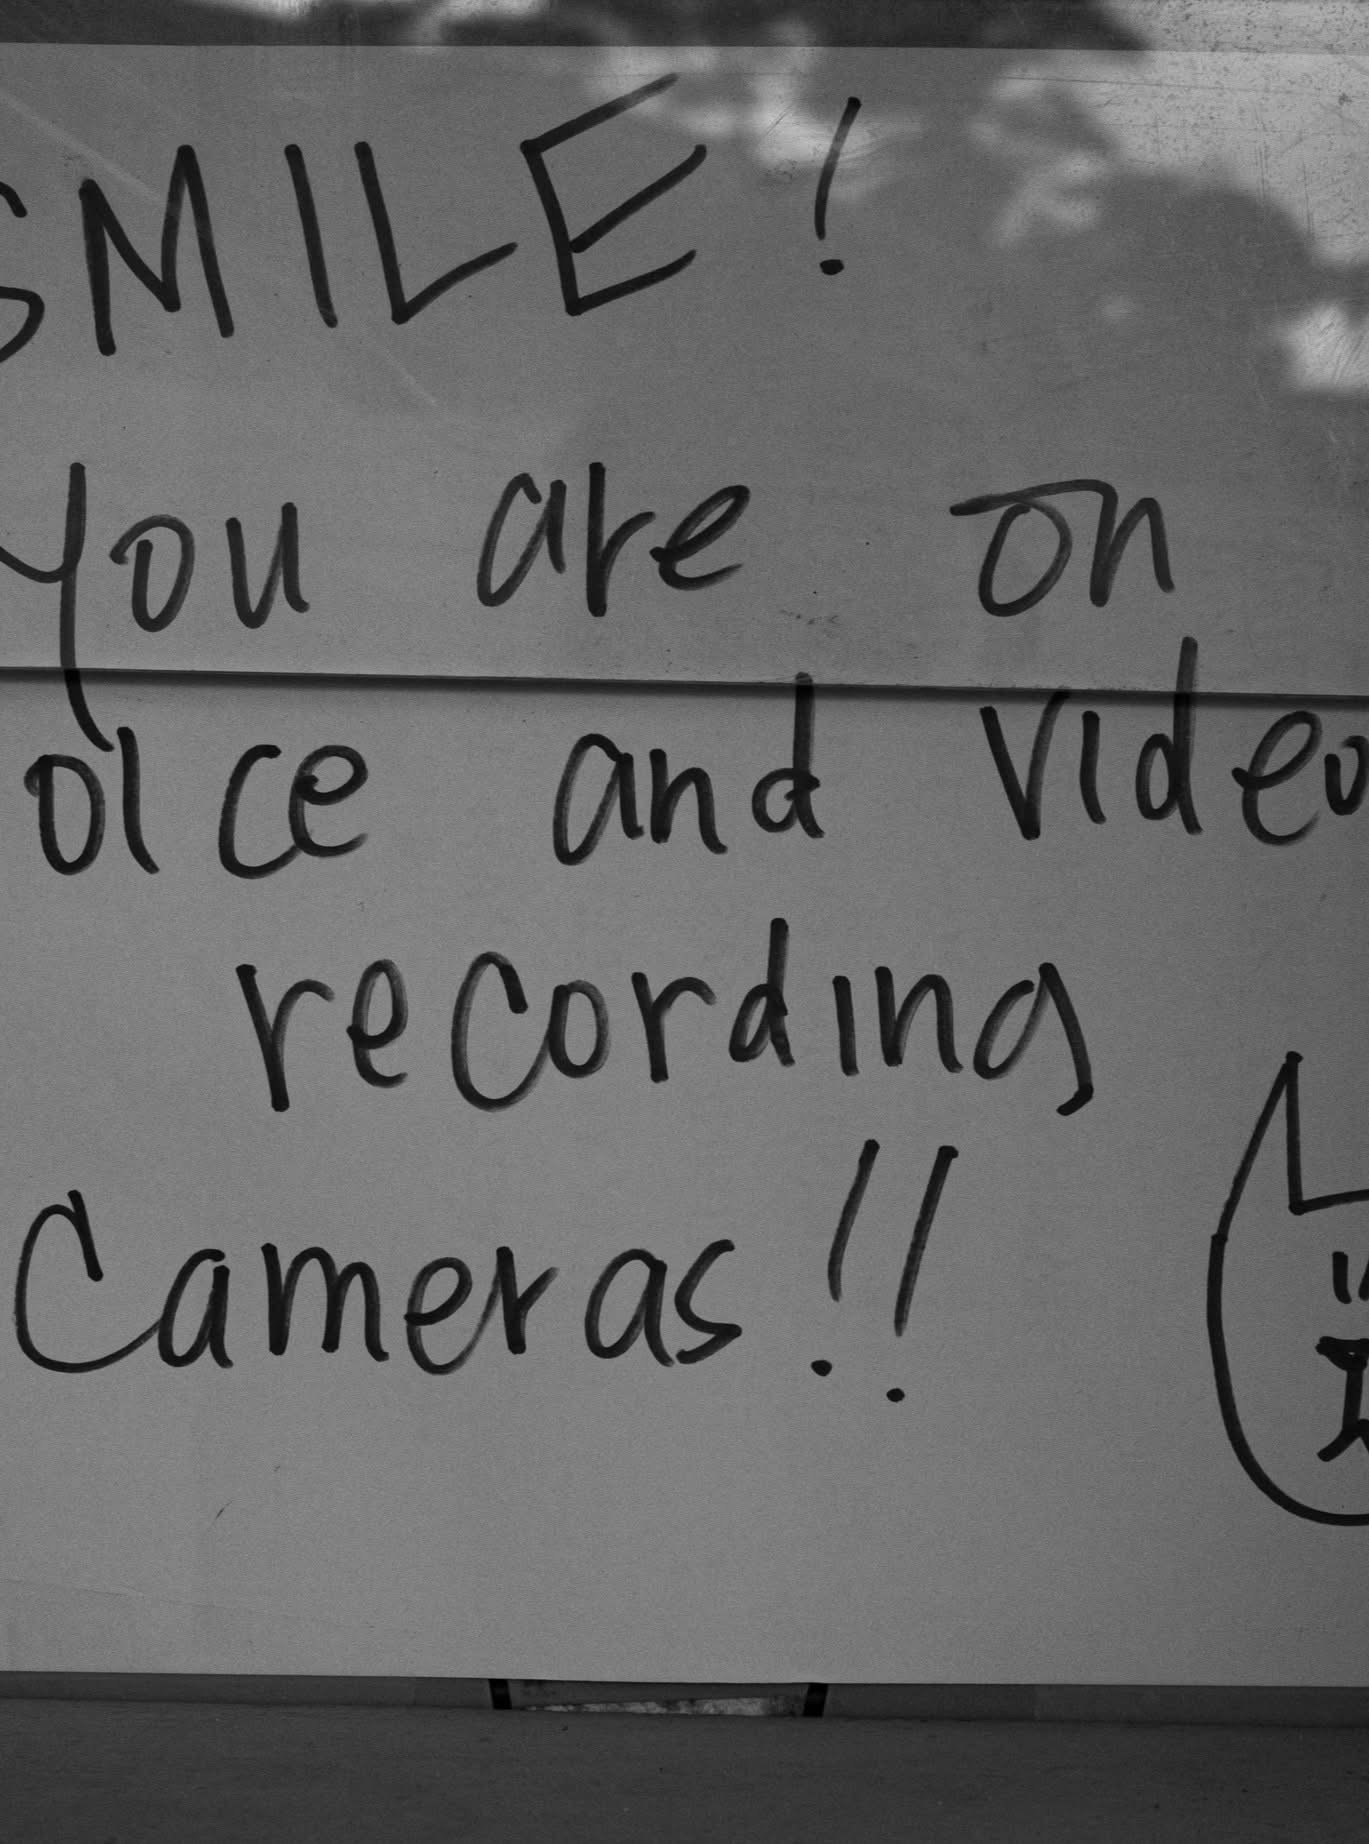 SMILE!
you are on
oice and video
recording
Cameras!!